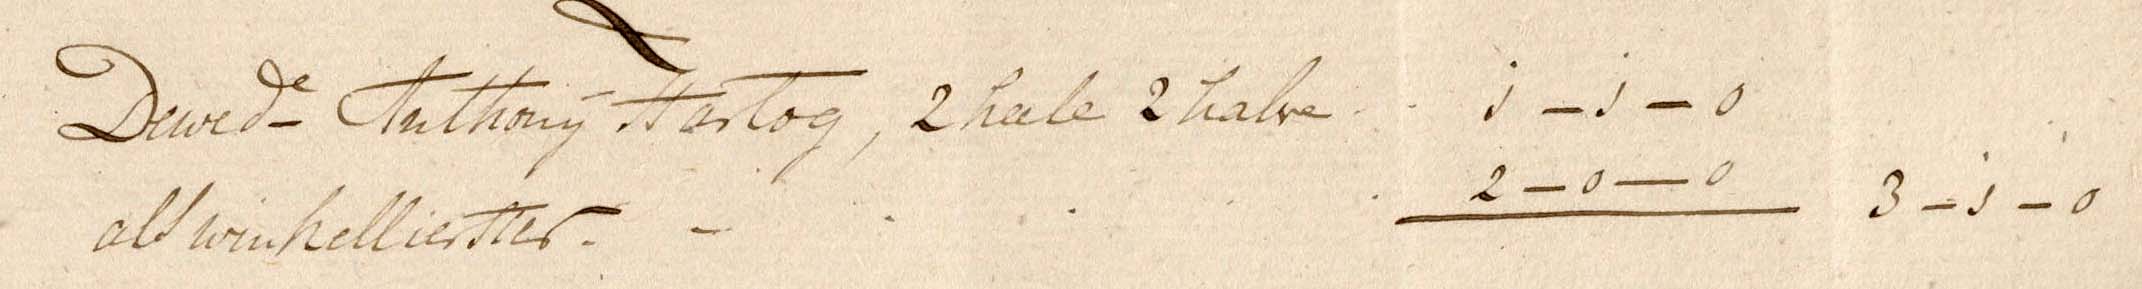 De wed:e Anthonÿ Hartog, 2 heele 2 halve . . 1 – 1 – 0
als winkellierster. – . . . . 2 – 0 – 0 3 – 1 – 0